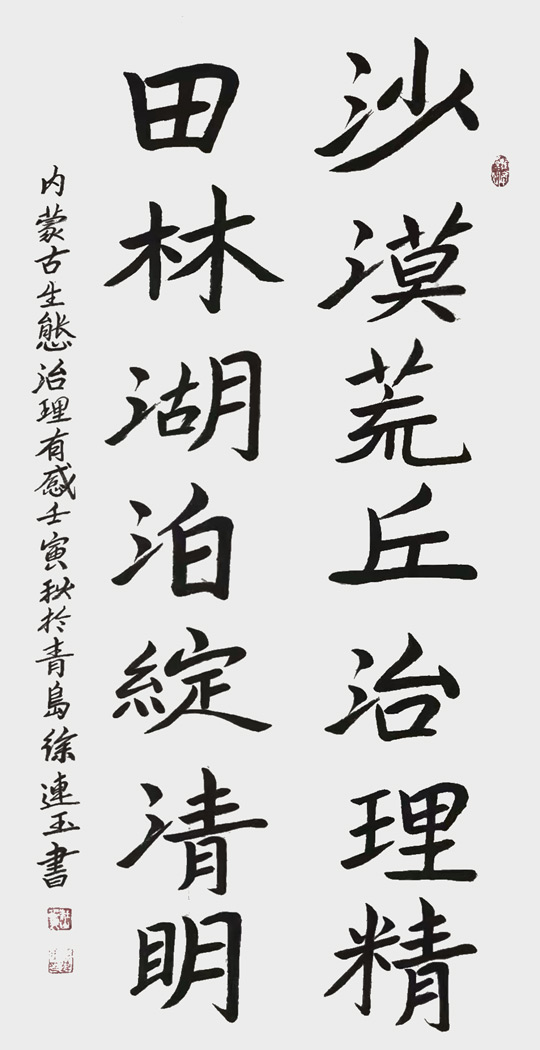 沙漠荒丘治理精
田林湖泊綻清明
内蒙古生態治理有感壬寅秋於青島徐連玉書